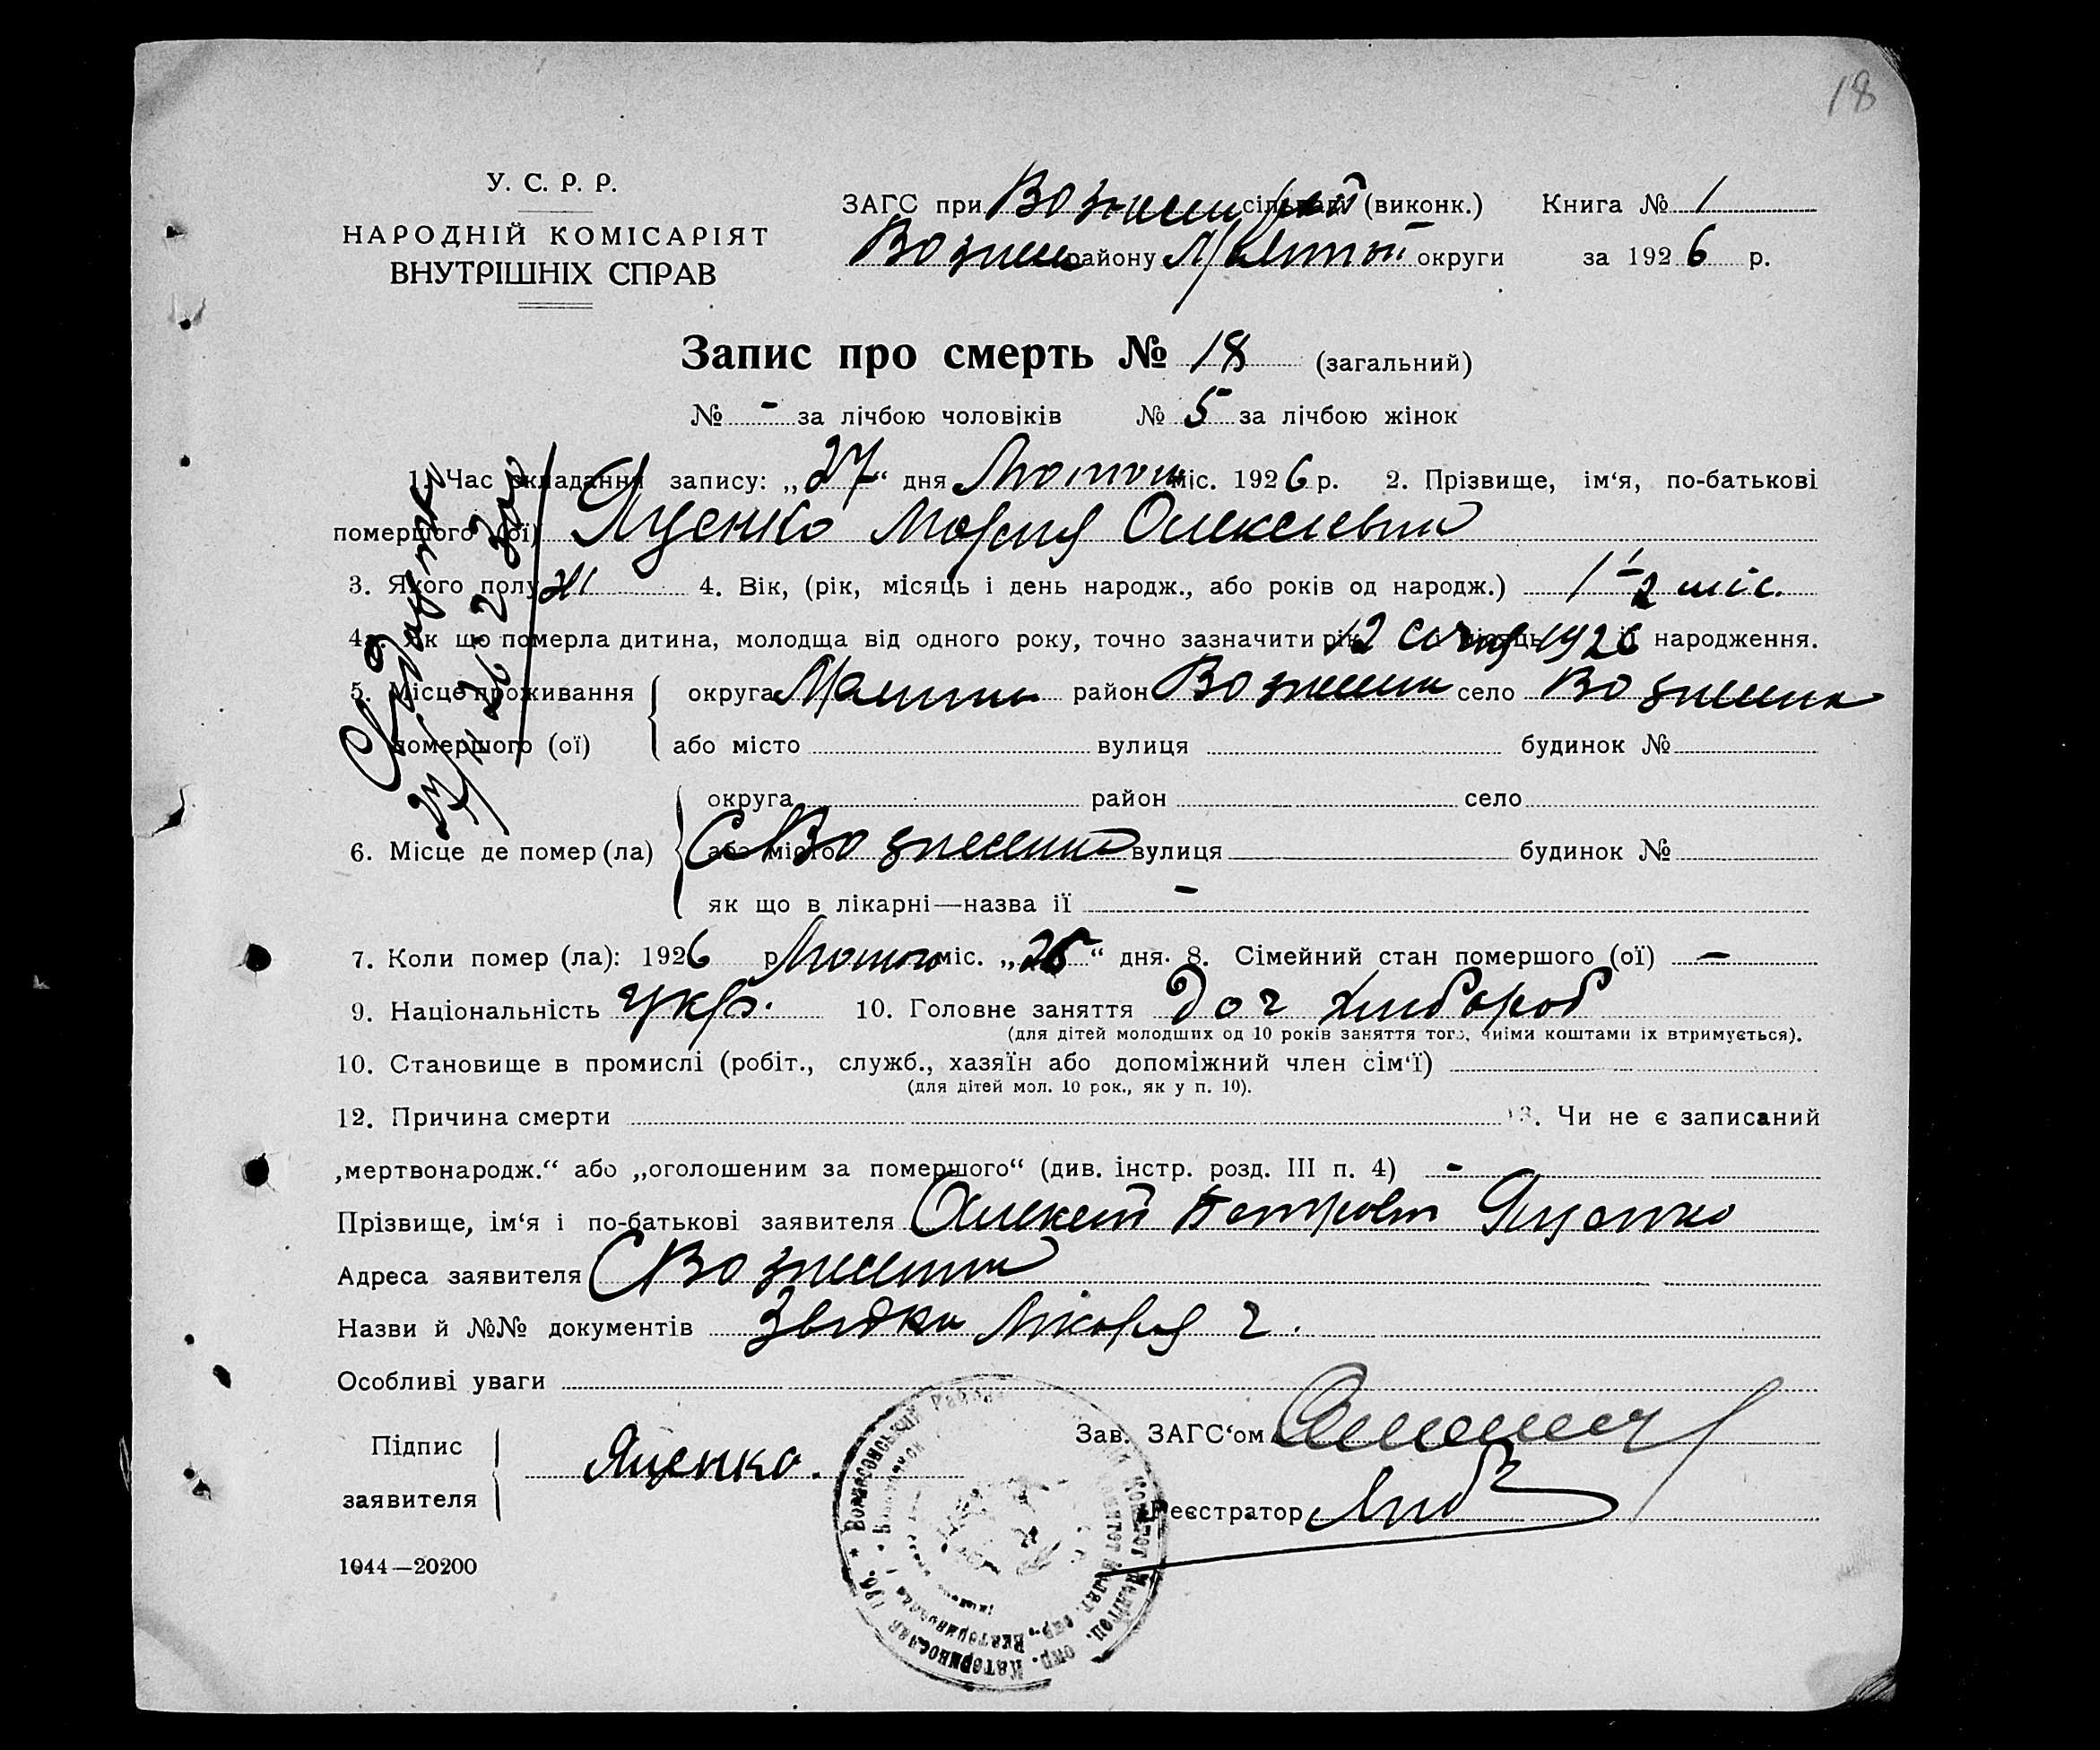 18
У. С. Р. Р.
НАРОДНІЙ КОМІСАРІЯТ
ВНУТРІШНІХ СПРАВ
ЗАГС при Вознесен сільраді (виконк.) Книга № 1
Вознесен району Меліт округи за 1926 р.
Запис про смерть № 18 (загальний)
№ - за лічбою чоловіків № 5 за лічбою жінок
1. Час складання запису: „27“ дня Лютого міс. 1926 р. 2. Прізвище, ім‘я, по-батькові
помершого (ої) Яценко Мария Олексіевна
3. Якого полу ж 4. Вік, (рік, місяць і день народж., або років од народж.) 1 1/2 міс.
4а. Як що померла дитина, молодща від одного року, точно зазначити рік 12 січня 1926 народження.
5. Місце проживання округа район Вознесен село Вознесенка
помершого (ої) або місто вулиця будинок №
округа район село
6. Місце де помер (ла) або місто С Вознесенка вулиця будинок №
як що в лікарні—назва її -
7. Коли помер (ла): 1926 р Лютого міс. „25“ дня. 8. Сімейний стан помершого (ої) —
9. Національність укр. 10. Головне заняття доч хлібороб
(для дітей молодших од 10 років заняття того, чиїми коштами їх втримується).
10. Становище в промислі (робіт., служб., хазяїн або допоміжний член сім‘ї)
(для дітей мол. 10 рок., як у п. 10).
12. Причина смерти 13. Чи не є записаний
„мертвонародж.“ або „оголошеним за помершого“ (див. інстр. розд. III п. 4) -
Прізвище, ім‘я і по-батькові заявителя Олексій Петрович Яценко
Адреса заявителя С Вознесенка
Назви й №№ документів Звідка Лікаря 2.
Особливі уваги
Підпис
заявителя
Яценко.
Зав. ЗАГС‘ом
Реєстратор
1044—20200